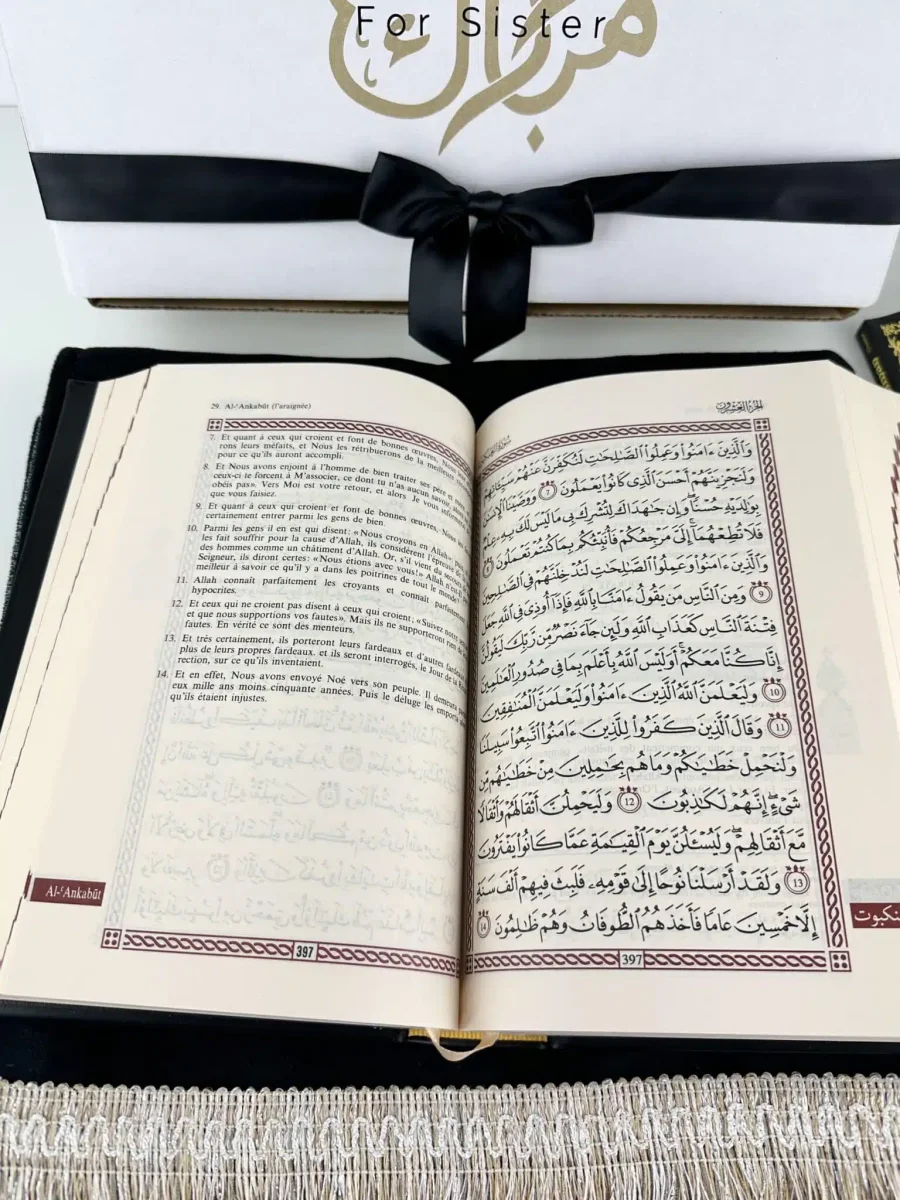 For Sister
مبارك
29. Al-ʿAnkabūt (l'araignée)
7. Et quant à ceux qui croient et font de bonnes œuvres, Nous
rons leurs méfaits, et Nous les rétribuerons de la meilleure
pour ce qu'ils auront accompli.
8. Et Nous avons enjoint à l'homme de bien traiter ses père et
ceux-ci te forcent à M'associer, ce dont tu n'as aucun savoir, alors
obéis pas». Vers Moi est votre retour, et alors Je vous informerai
que vous faisiez.
9. Et quant à ceux qui croient et font de bonnes œuvres, Nous les
certainement entrer parmi les gens de bien.
10. Parmi les gens il en est qui disent: «Nous croyons en Allah»; puis
les fait souffrir pour la cause d'Allah, ils considèrent l'épreuve de
des hommes comme un châtiment d'Allah. Or, s'il vient du secours
Seigneur, ils diront certes: «Nous étions avec vous!» Allah n'est-Il pas
meilleur à savoir ce qu'il y a dans les poitrines de tout le monde?
11. Allah connaît parfaitement les croyants et connaît parfaitement
hypocrites.
12. Et ceux qui ne croient pas disent à ceux qui croient: «Suivez notre
et que nous supportions vos fautes». Mais ils ne supporteront rien de
fautes. En vérité ce sont des menteurs.
13. Et très certainement, ils porteront leurs fardeaux et d'autres fardeaux
plus de leurs propres fardeaux. et ils seront interrogés, le Jour de la
rection, sur ce qu'ils inventaient.
14. Et en effet, Nous avons envoyé Noé vers son peuple. Il demeura
eux mille ans moins cinquante années. Puis le déluge les emporta
qu'ils étaient injustes.
Al-ʿAnkabūt
397
الجزء العشرون
وَٱلَّذِينَ ءَامَنُوا۟ وَعَمِلُوا۟ ٱلصَّٰلِحَٰتِ لَنُكَفِّرَنَّ عَنْهُمْ سَيِّـَٔاتِهِمْ
وَلَنَجْزِيَنَّهُمْ أَحْسَنَ ٱلَّذِى كَانُوا۟ يَعْمَلُونَ ٧ وَوَصَّيْنَا ٱلْإِنسَٰنَ
بِوَٰلِدَيْهِ حُسْنًا وَإِن جَٰهَدَاكَ لِتُشْرِكَ بِى مَا لَيْسَ لَكَ بِهِۦ عِلْمٌ
فَلَا تُطِعْهُمَآ إِلَىَّ مَرْجِعُكُمْ فَأُنَبِّئُكُم بِمَا كُنتُمْ تَعْمَلُونَ ٨
وَٱلَّذِينَ ءَامَنُوا۟ وَعَمِلُوا۟ ٱلصَّٰلِحَٰتِ لَنُدْخِلَنَّهُمْ فِى ٱلصَّٰلِحِينَ
٩ وَمِنَ ٱلنَّاسِ مَن يَقُولُ ءَامَنَّا بِٱللَّهِ فَإِذَآ أُوذِىَ فِى ٱللَّهِ جَعَلَ
فِتْنَةَ ٱلنَّاسِ كَعَذَابِ ٱللَّهِ وَلَئِن جَآءَ نَصْرٌ مِّن رَّبِّكَ لَيَقُولُنَّ
إِنَّا كُنَّا مَعَكُمْ أَوَلَيْسَ ٱللَّهُ بِأَعْلَمَ بِمَا فِى صُدُورِ ٱلْعَٰلَمِينَ
١٠ وَلَيَعْلَمَنَّ ٱللَّهُ ٱلَّذِينَ ءَامَنُوا۟ وَلَيَعْلَمَنَّ ٱلْمُنَٰفِقِينَ
١١ وَقَالَ ٱلَّذِينَ كَفَرُوا۟ لِلَّذِينَ ءَامَنُوا۟ ٱتَّبِعُوا۟ سَبِيلَنَا
وَلْنَحْمِلْ خَطَٰيَٰكُمْ وَمَا هُم بِحَٰمِلِينَ مِنْ خَطَٰيَٰهُم مِّن
شَىْءٍ إِنَّهُمْ لَكَٰذِبُونَ ١٢ وَلَيَحْمِلُنَّ أَثْقَالَهُمْ وَأَثْقَالًا
مَّعَ أَثْقَالِهِمْ وَلَيُسْـَٔلُنَّ يَوْمَ ٱلْقِيَٰمَةِ عَمَّا كَانُوا۟ يَفْتَرُونَ
١٣ وَلَقَدْ أَرْسَلْنَا نُوحًا إِلَىٰ قَوْمِهِۦ فَلَبِثَ فِيهِمْ أَلْفَ سَنَةٍ
إِلَّا خَمْسِينَ عَامًا فَأَخَذَهُمُ ٱلطُّوفَانُ وَهُمْ ظَٰلِمُونَ ١٤
نكبوت
397